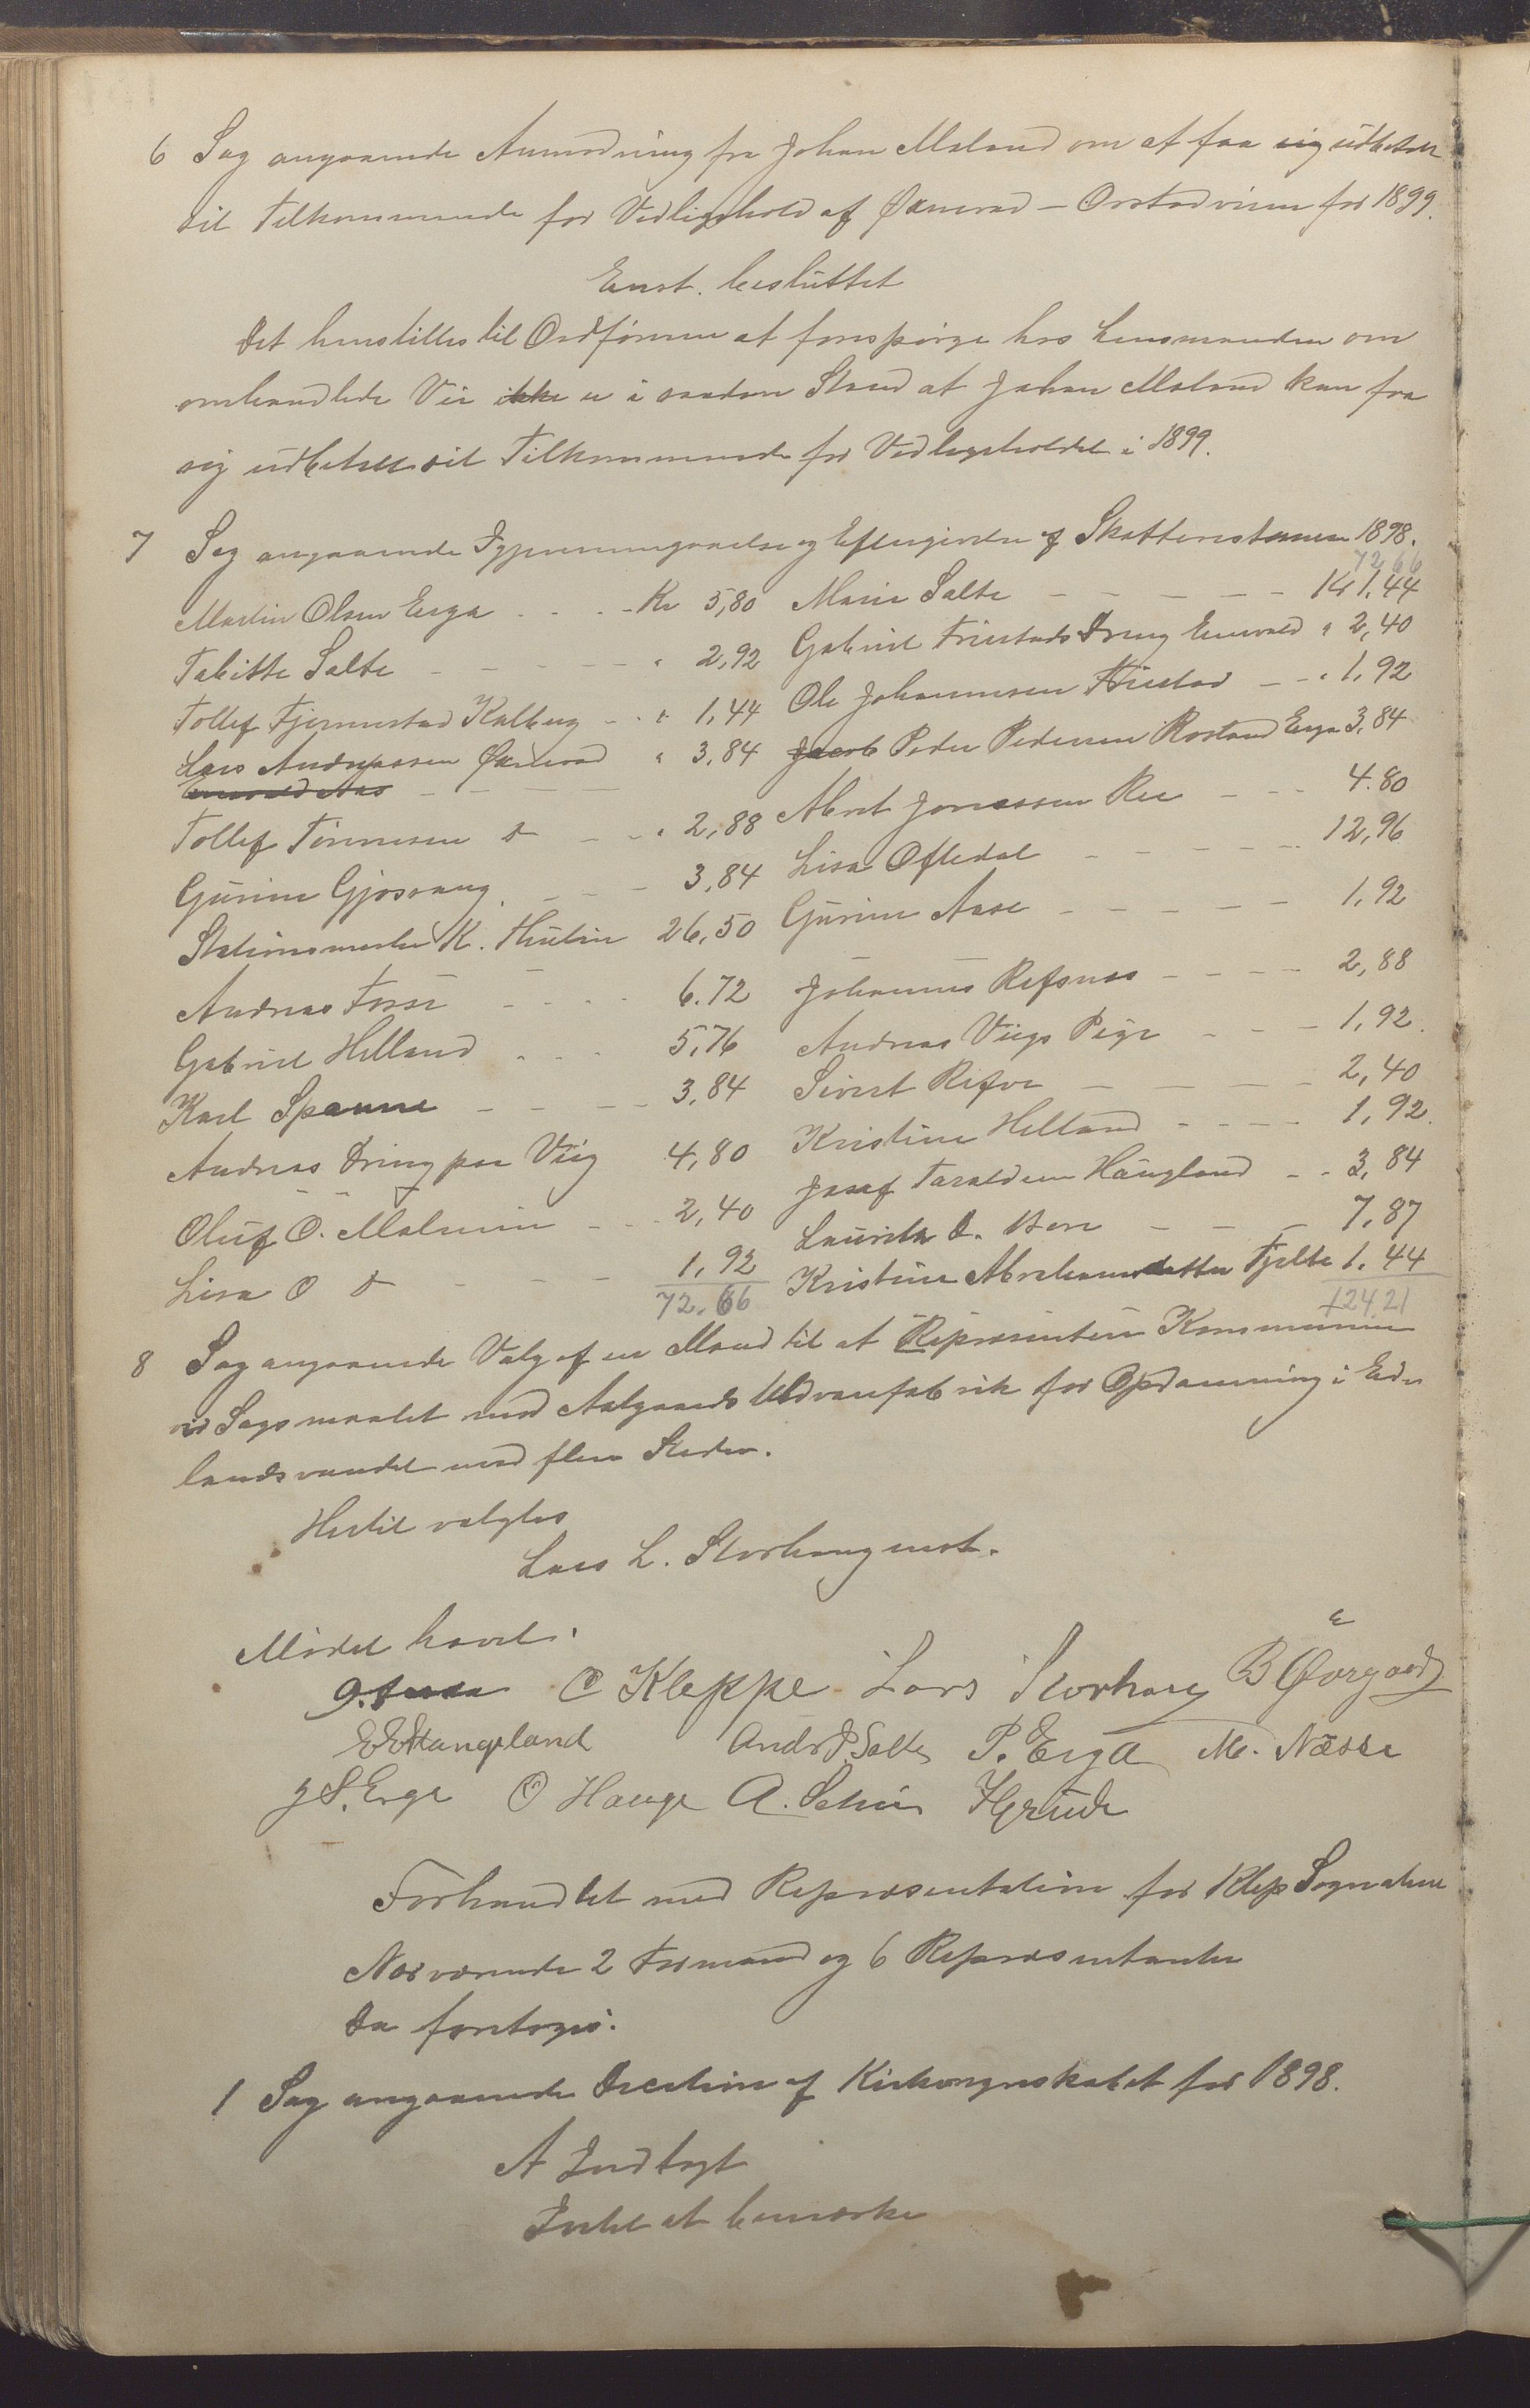 6 Sag angaaende Anmodning fra Johan Maland om at faa sig udbetalt
sit Tilkommende for Vedligehold af Øxnevad - Orstadveien for 1899.
Enst. besluttet
Det henstilles til Ordføreren at forespørge hos Lensmanden om
omhandlede Vei ikke er i saadan Stand at Johan Maland kan faa
sig udbetalt sit Tilkommende for Vedligeholdet i 1899.
7 Sag angaaende Gjennemgaaelse og Eftergivelse af Skatterestancer 1898.
72 66
Martin Olsen Erga - - - Kr 5,80 Marie Salte - - - - - Kr 1,44
Tabitte Salte - - - - - " 2,92 Gabriel Friestads Dreng Enevald " 2,40
Tollef Fjermestad Kalberg - - " 1,44 Ole Johannesen Friestad - - " 1,92
Lars Andreassen Øxnevad " 3,84 Jacob Peder Pedersen Rostand Erga 3,84
Enevald Aas - - - -
Tollef Tønnesen do - - " 2,88 Abret Jonassen Ree - - - 4.80
Gurine Gjøsvang - - - 3,84 Lisa Oftedal - - - - - 12,96
Stationsmester K. Hulin 26,50 Gurine Aase - - - - - 1,92
Andreas Fosse - - - - 6.72 Johannes Refsnes - - - - 2,88
Gabriel Helland - - - 5,76 Andreas Viigs Pige - - - 1,92.
Karl Spanne - - - - 3,84 Sivert Refve - - - - 2,40
Andreas Dreng paa Viig 4,80 Kristine Helland - - - - 1,92.
Oluf O. Malmin - - - 2,40 Josef Taraldsen Haugland - - 3,84
Lisa O do - - - - 1,92 Laurits D. Bore - - - 7,87
72.66 Kristine Abrahamsdatter Tjelte 1.44
124.21
8 Sag angaaende Valg af en Mand til at Repræsentere Kommunen
ved Sagsmaalet med Aalgaards Uldvarefabrik for Opdæmning i Ed-
landsvandet med flere Steder.
Hertil valgtes
Lars L. Storhaug enst.
Mødet hævet.
O Kleppe Lars Storhaug B Øvrgaard
E E Hangeland Andr P. Salte P. Erga M. Næsse
J S. Erga O Hauge A. Hgrude
Forhandlet med Repræsentationen for Klep Sogn alene
Nærværende 2 Formænd og 6 Repræsentanter
Da foretoges:
1 Sag angaaende Decision af Kirkeregnskabet for 1898.
A Indtægt
Intet at bemærke